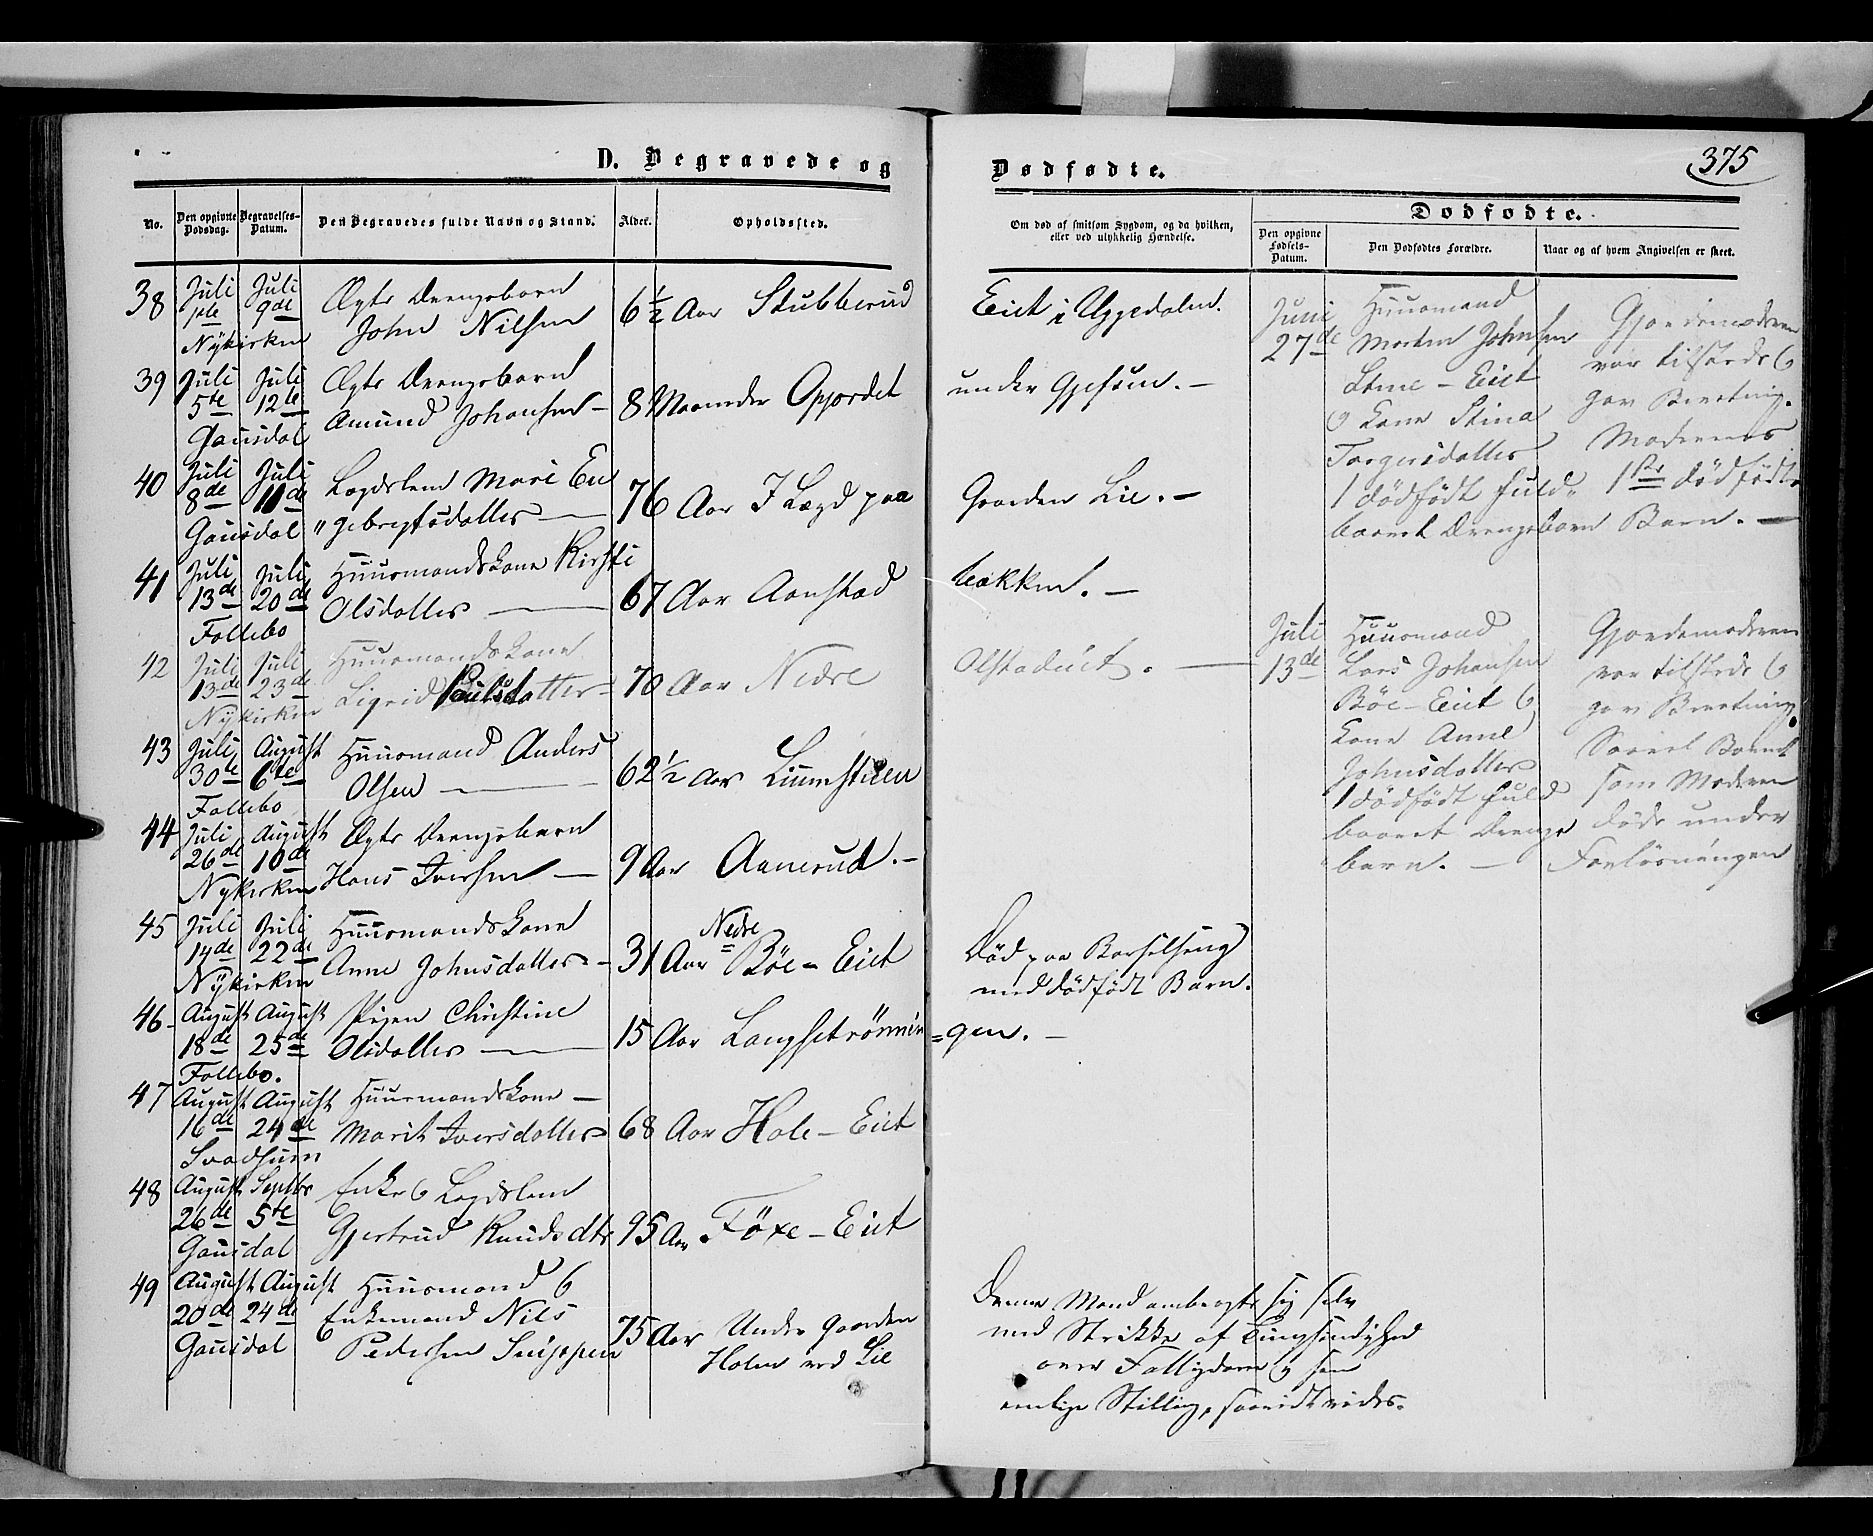 D. Begravede og
Dødfødte.
375
No.
Den opgivne Dødsdag.
Begravelses-Datum.
Den Begravedes fulde Navn og Stand.
Alder.
Opholdssted.
Om død af smitsom Sygdom, og da hvilken,
eller ved ulykkelig Hændelse.
Dødfødte.
Den opgivne Fødsels-Datum.
Den Dødfødtes Forældre.
Naar og af hvem Angivelsen er skeet.
38 Juli Juli Ægte Drengebarn
1ste 9de John Nilsen 6½ Aar Stubberud Eiet i Uggedalen.
Nykirken
39 Juli Juli Ægte Drengebarn
5te 12te Amund Johansen – 8 Maaneder Opjordet under –
Gausdal
40 Juli Juli Lægdslem Mari En
8de 11de "gebregtsdatter — 76 Aar I Lægd paa Gaarden Lie. –
Gausdal
41 Juli Juli Huusmandskone Kirsti
13de 20de Olsdatter — 67 Aar Aanstad bakken. –
Follebo
42 Juli Juli Huusmandskone
13de 23de Sigrid Poulsdatter – 70 Aar Nedre Olstadeiet. —
Nykirken
43 Juli August Huusmand Anders
30te 6te Olsen — 62½ Aar Linnestuen
Follebo
44 Juli August Ægte Drengebarn
26de 10de Hans Iversen — 9 Aar Aanerud. –
Nykirken
45 Juli Juli Huusmandskone
14de 22de Anne Johnsdatter – 31 Aar Nedre Böe – Eiet
Nykirken
Död paa Barselseng
med dödfödt Barn.
46 August August Pigen Christine
18de 25de Olsdatter — 15 Aar Langsetrönnin=gen. –
Follebo.
47 August August Huusmandskone –
16de 24de Marit Iversdatter 68 Aar Hole – Eiet
Svadsum
48 August Septbr Enke & Lægdslem
26de 5te Gjertrud Knudsdtr 95 Aar Föxe – Eiet
Gausdal
49 August August Huusmand &
20de 24de Enkemand Nils
Gausdal Pedersen 75 Aar Under Gaarden
Holen ved Lie
Denne Mand ombragte sig selv
med Strikke af Tungsindighed
over Fattigdom & sin
Stilling, saavidt vides.
Juni
27de
Huusmand
Morten Johnsen
Stine – Eiet
& Kone Stina
Torgersdatter
1 dödfödt fuld"
baaret Drengebarn
Gjordemoderen
var tilstede &
gav Beretning.
Moderens
1ste dödfödte
Barn. –
Juli
13de
Huusmand
Lars Johansen
Böe – Eiet &
Kone Anne
Johnsdatter
1 dödfödt fuld
baaret Drenge
barn. –
Gjordemoderen
var tilstede &
gav Beretning.
Saavel Barnet
som Moderen
döde under
Forlösningen